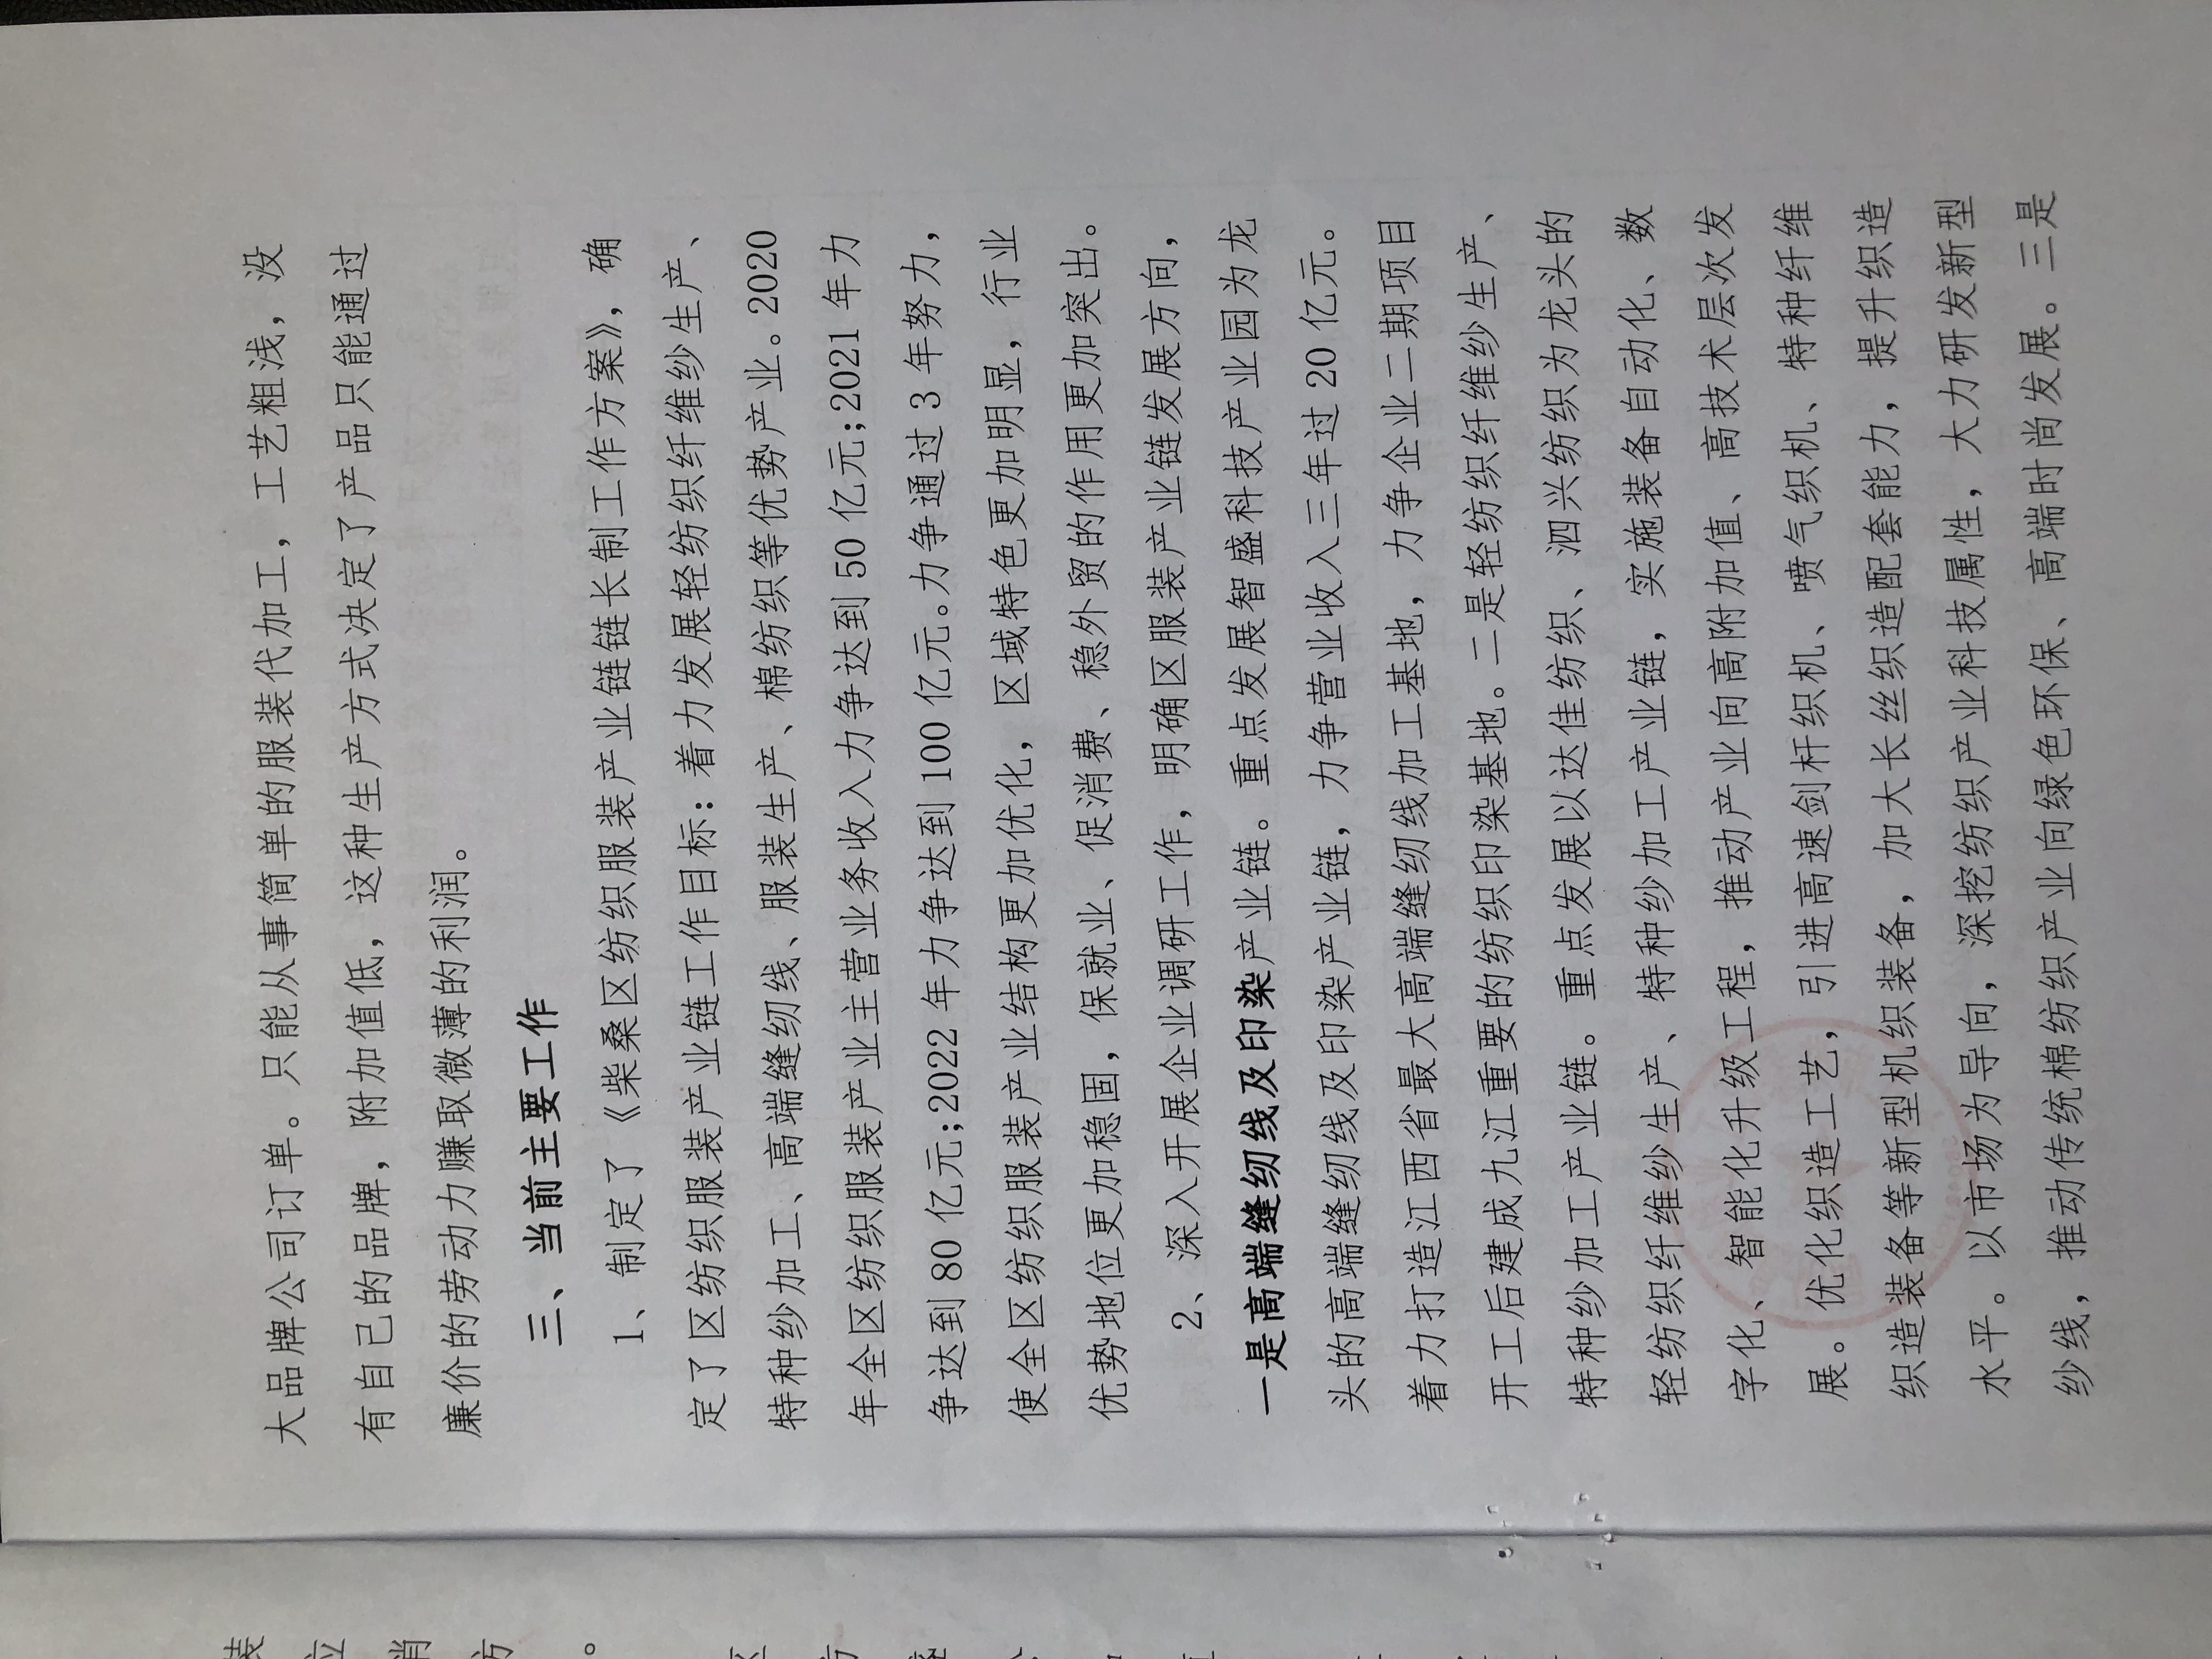 大品牌公司订单。只能从事简单的服装代加工，工艺粗浅，没
有自己的品牌，附加值低，这种生产方式决定了产品只能通过
廉价的劳动力赚取微薄的利润。
三、当前主要工作
1、制定了《柴桑区纺织服装产业链链长制工作方案》，确
定了区纺织服装产业链工作目标：着力发展轻纺织纤维纱生产、
特种纱加工、高端缝纫线、服装生产、棉纺织等优势产业。2020
年全区纺织服装产业主营业务收入力争达到 50 亿元;2021 年力
争达到 80 亿元;2022 年力争达到 100 亿元。力争通过 3 年努力，
使全区纺织服装产业结构更加优化，区域特色更加明显，行业
优势地位更加稳固，保就业、促消费、稳外贸的作用更加突出。
2、深入开展企业调研工作，明确区服装产业链发展方向，
一是高端缝纫线及印染产业链。重点发展智盛科技产业园为龙
头的高端缝纫线及印染产业链，力争营业收入三年过 20 亿元。
着力打造江西省最大高端缝纫线加工基地，力争企业二期项目
开工后建成九江重要的纺织印染基地。二是轻纺织纤维纱生产、
特种纱加工产业链。重点发展以达佳纺织、泗兴纺织为龙头的
轻纺织纤维纱生产、特种纱加工产业链，实施装备自动化、数
字化、智能化升级工程，推动产业向高附加值、高技术层次发
展。优化织造工艺，引进高速剑杆织机、喷气织机、特种纤维
织造装备等新型机织装备，加大长丝织造配套能力，提升织造
水平。以市场为导向，深挖纺织产业科技属性，大力研发新型
纱线，推动传统棉纺织产业向绿色环保、高端时尚发展。三是
装
位
消
方
。